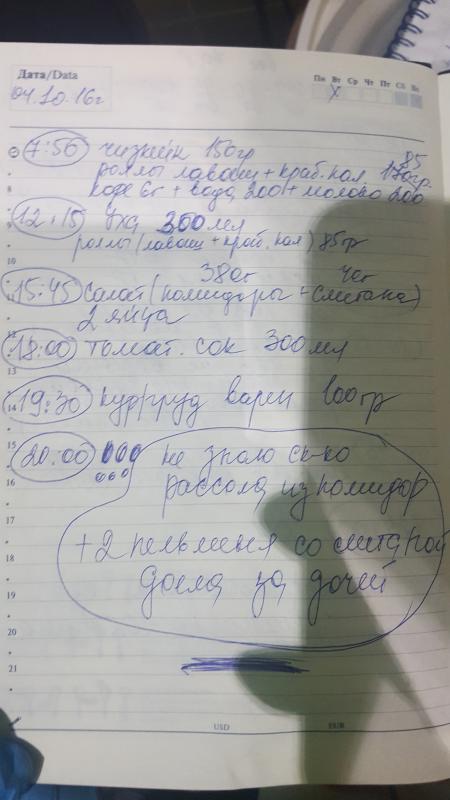 Дата/Data
Пн Вт Ср Чт Пт Сб Вс
04.10.16г
X
7:56 чизкейк 150гр
85
роллы лаваш + краб.пал 170гр.
кофе 6г + вода 200 + молоко 200
12:15 уха 300мл
роллы (лаваш + краб. пал) 85гр
380г 40г
15:45 Салат (помидоры + сметана)
2 яйца
18:00 томат. сок 300мл
19:30 кур/груд варен 100гр
20:00 не знаю ск-ко
рассола из помидор
+ 2 пельменя со сметаной
доела за дочей
8
9
10
11
12
13
14
15
16
17
18
19
20
21
USD EUR